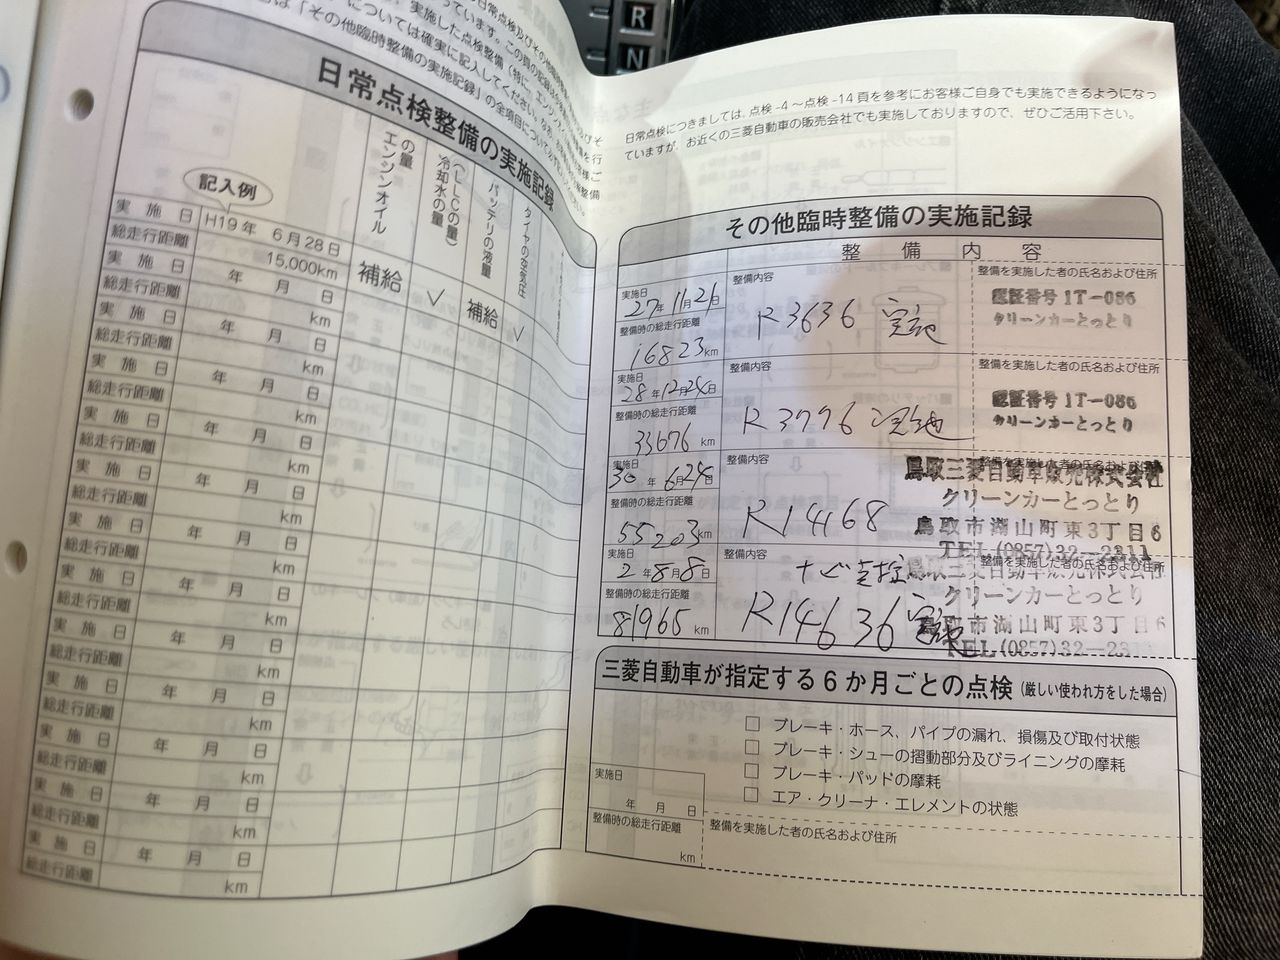 R
N
日常点検整備の実施記録
記入例
エンジンオイルの量
冷却水の量
(LLCの量)
バッテリの液量
タイヤの空気圧
実施日
H19年 6月28日
総走行距離
15,000km
補給
✓
補給
✓
実施日
年 月 日
総走行距離
km
実施日
年 月 日
総走行距離
km
実施日
年 月 日
総走行距離
km
実施日
年 月 日
総走行距離
km
実施日
年 月 日
総走行距離
km
実施日
年 月 日
総走行距離
km
実施日
年 月 日
総走行距離
km
実施日
年 月 日
総走行距離
km
実施日
年 月 日
総走行距離
km
実施日
年 月 日
総走行距離
km
実施日
年 月 日
総走行距離
km
実施日
年 月 日
総走行距離
km
日常点検につきましては、点検-4～点検-14頁を参考にお客様ご自身でも実施できるようになっ
ていますが、お近くの三菱自動車の販売会社でも実施しておりますので、ぜひご活用下さい。
その他臨時整備の実施記録
整備内容
実施日
27年11月21日
整備時の総走行距離
16823km
整備内容
R3636 実施
整備を実施した者の氏名および住所
認証番号 1T-086
クリーンカーとっとり
実施日
28年12月24日
整備時の総走行距離
33676km
整備内容
R3776 実施
整備を実施した者の氏名および住所
認証番号 1T-086
クリーンカーとっとり
実施日
30年6月24日
整備時の総走行距離
55203km
整備内容
R14168
整備を実施した者の氏名および住所
鳥取三菱自動車販売株式会社
クリーンカーとっとり
鳥取市湖山町東3丁目6
TEL(0857)32-2311
実施日
2年8月8日
整備時の総走行距離
81965km
整備内容
R14636 実施
整備を実施した者の氏名および住所
鳥取三菱自動車販売株式会社
クリーンカーとっとり
鳥取市湖山町東3丁目6
TEL(0857)32-2311
三菱自動車が指定する6か月ごとの点検(厳しい使われ方をした場合)
□ ブレーキ・ホース、パイプの漏れ、損傷及び取付状態
□ ブレーキ・シューの摺動部分及びライニングの摩耗
□ ブレーキ・パッドの摩耗
□ エア・クリーナ・エレメントの状態
実施日
年 月 日
整備時の総走行距離
km
整備を実施した者の氏名および住所